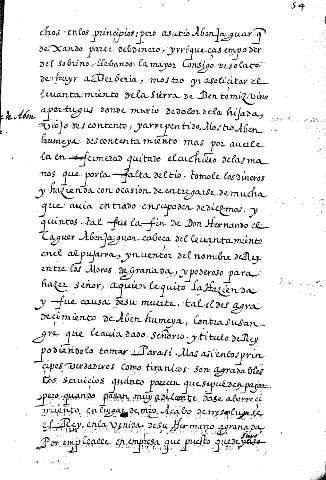 54
chos. en los principios; pero astuto Aben Jaguar q
dexando parte del dinero, y rriqueças em poder
del sobrino, llebando la mayor consigo resoluto
de huyr a Berberia, mostro yr a solicitar el
levantamiento de la sierra de Bentomiz. Vino
a portugus donde murio de dolor de la hijada,
viejo descontento, y arrepentido. Mostro Aben
humeya descontentamiento mas por averle
la enfermedad quitado el cuchillo de las ma
nos que por la falta del tio. tomole los dineros
y hazienda con ocasion de entregarse de mucha
que avia entrado en su poder de diezmos, y
quintos. tal fue la fin de Don Hernando el
Çaguer Aben Jaguar cabeça del levantamiento
en el alpujarra, ynventor del nombre de Rey
entre los Moros de Granada, y poderoso para
hazer señor, a quien le quito la Hazienda
y fue causa de su muerte. tal el desagra
decimiento de Aben humeya, contra su san
gre que le avia dado señorio, y titulo de Rey
podiendolo tomar para si. Mas asi en los prin
cipes verdaderos como tiranicos son agradables
los servicios quanto parecen que se pueden pagar
pero quando pasan muy adelante dase aborreci
miento, en lugar de mrd. Acabo de resoluerse
el Rey, en la venida de su Hermano a granada
Por emplealle en empresa que puesto que de suyo